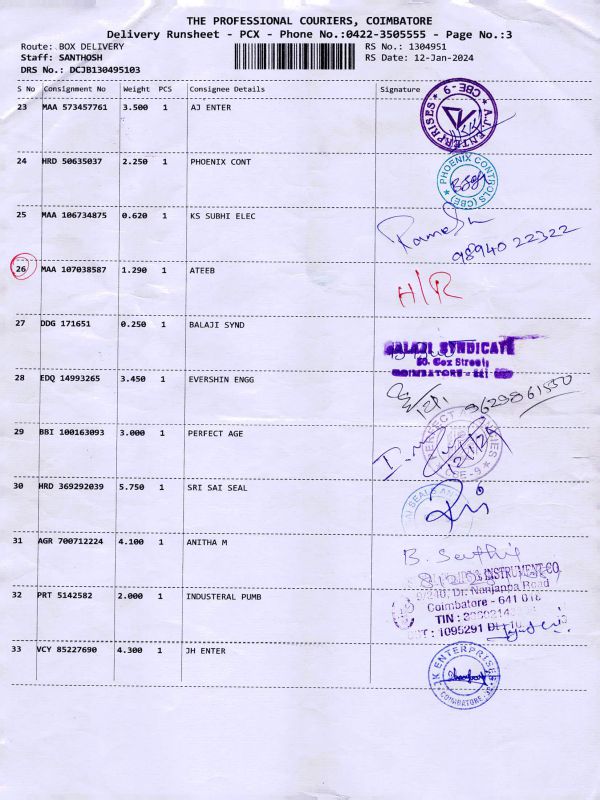 THE PROFESSIONAL COURIERS, COIMBATORE
Delivery Runsheet - PCX - Phone No.:0422-3505555 - Page No.:3
Route: BOX DELIVERY
RS No.: 1304951
Staff: SANTHOSH
RS Date: 12-Jan-2024
DRS No.: DCJB130495103
S No Consignment No Weight PCS Consignee Details Signature
23 MAA 573457761 3.500 1 AJ ENTER
A.J. ENTERPRISES * CBE-9 *
24 HRD 50635037 2.250 1 PHOENIX CONT
PHOENIX CONTROLS (CBE)
25 MAA 106734875 0.620 1 KS SUBHI ELEC
Ramesh
98940 22322
26 MAA 107038587 1.290 1 ATEEB
H/R
27 DDG 171651 0.250 1 BALAJI SYND
BALAJI SYNDICATE
Cox Street
COIMBATORE
28 EDQ 14993265 3.450 1 EVERSHIN ENGG
9629861550
29 BBI 100163093 3.000 1 PERFECT AGE
PERFECT
CBE-9
12/1/24
30 HRD 369292039 5.750 1 SRI SAI SEAL
31 AGR 700712224 4.100 1 ANITHA M
B. Santhi
INSTRUMENT CO.
Dr. Nanjappa Road
32 PRT 5142582 2.000 1 INDUSTERAL PUMB
Coimbatore - 641 018
TIN :
CST : 1095291
33 VCY 85227690 4.300 1 JH ENTER
ENTERPRISES
COIMBATORE